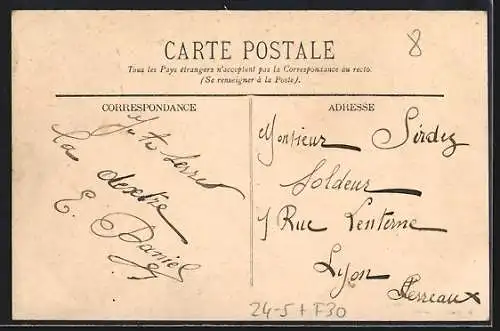 CARTE POSTALE
Tous les Pays étrangers n'acceptent pas la Correspondance au recto.
(Se renseigner à la Poste).
8
CORRESPONDANCE
Je te serre
la dextre
E. Daniel
ADRESSE
Monsieur Sirdey
Soldeur
1 Rue Lenterne
Lyon
Terreaux
24-5+F30